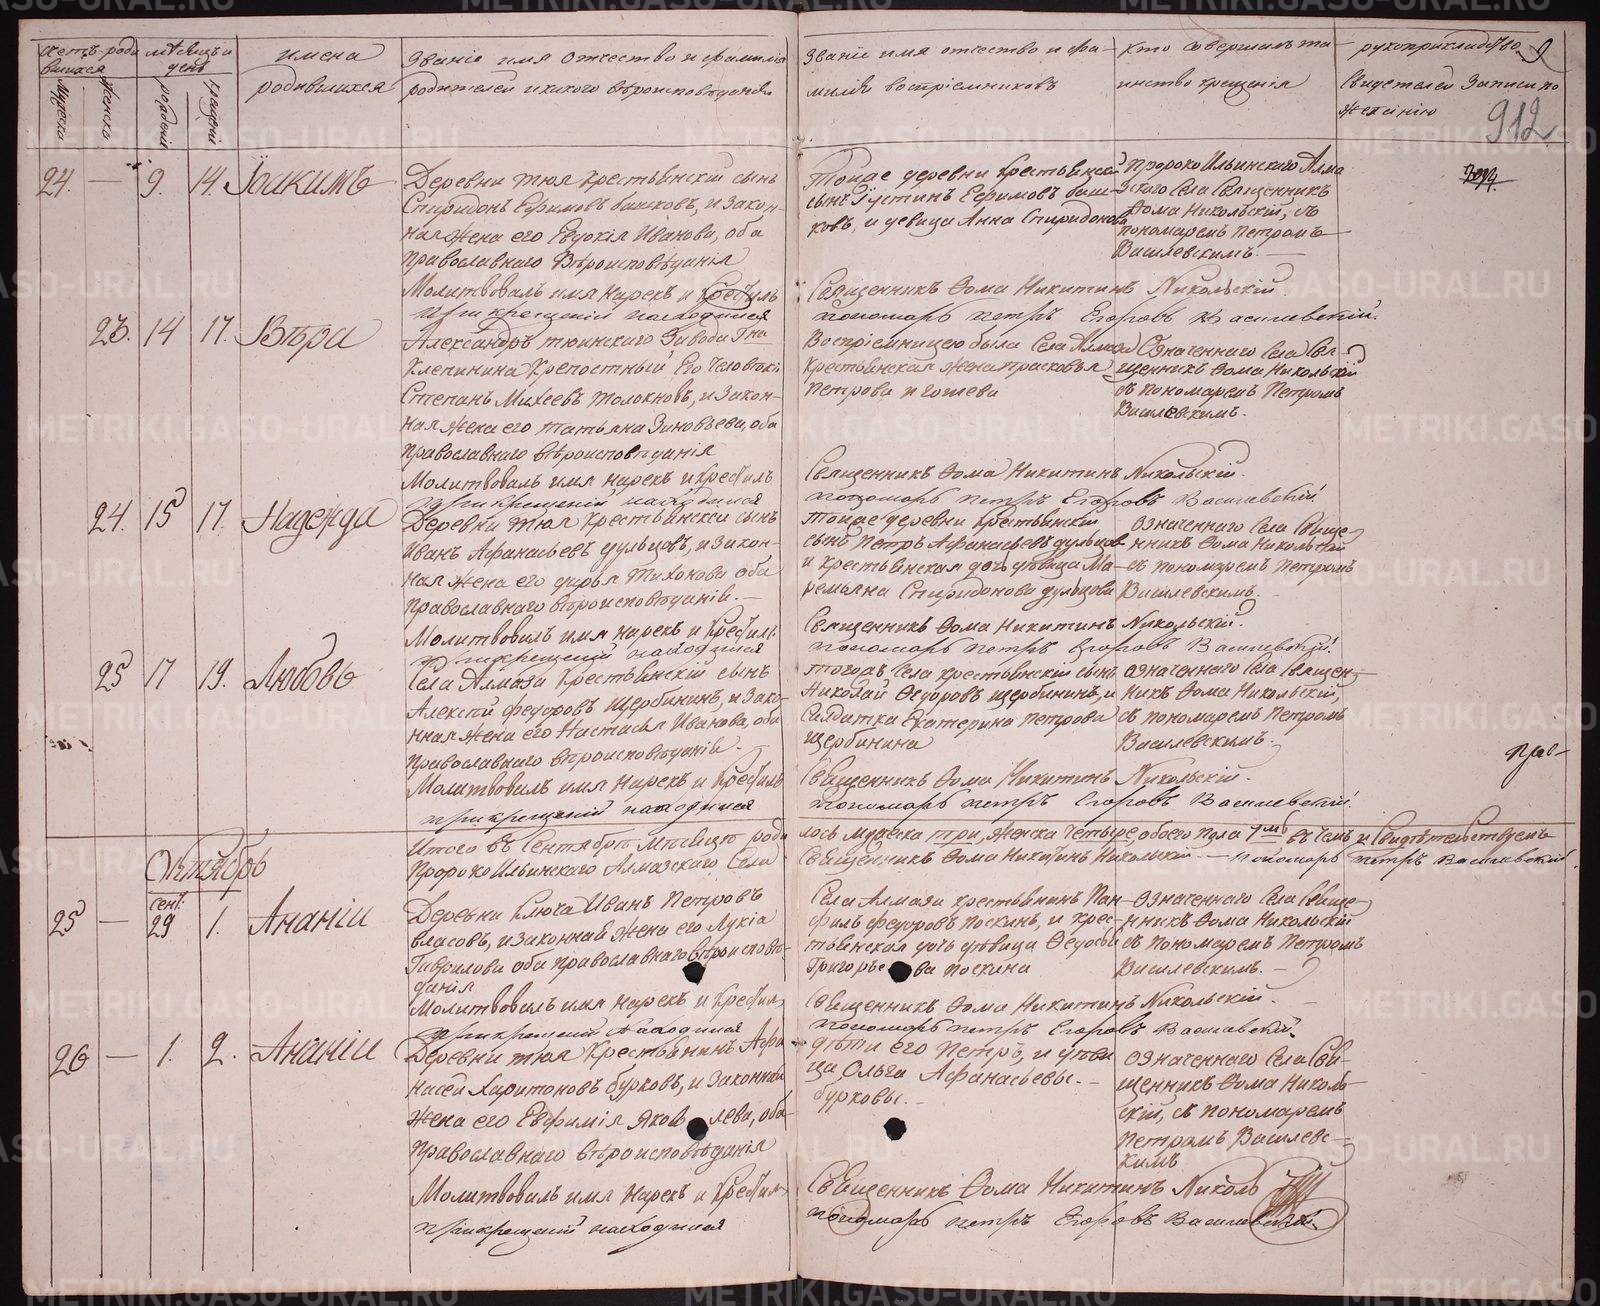 Счетъ роди
вшихся
Мужеска
Женска
мѣсяцъ и
день
рожденія
крещенія
имена
родившихся
Званіе имя отчество и фамилія
родителей и какого вѣроисповѣданія
Званіе имя отчество и фа-
милія воспріемниковъ
Кто совершалъ та-
инство крещенія
рукоприкладство
свидетелей записи по
желанію
912
24. — 9. 14. Іоакимъ
Деревни Тюя Крестьянскій сынъ
Спиридонъ Ефимовъ башковъ, и закон-
ная жена его Евдокія Иванова, оба
православнаго Вѣроисповѣданія
Тойже деревни крестьянской
сынъ Іустинъ Ефимовъ баш-
ковъ, и девица Анна Спиридонова
Пророко Ильинского Алма
зского Села Священникъ
Ѳома Никольскій, съ
пономаремъ Петромъ
Василевскимъ. —
Молитвовалъ имя нарекъ и крестилъ
Священникъ Ѳома Никитинъ Никольскій.
при крещеніи находился
пономарь Петръ Егоровъ Василевскій.
23. 14 17. Вѣра
Александръ тюинскаго Завода Гна
Клепинина Крепостный Его человѣкъ
Степанъ Михеевъ Толокновъ, и закон-
ная жена его Татьяна Зиновьева, оба
православнаго вѣроисповѣданія
Воспріемницею была Села Алмаза
Крестьянская жена Прасковья
Петрова Иголева
Означеннаго Села Свя-
щенникъ Ѳома Никольскій
съ пономаремъ Петромъ
Василевскимъ.
Молитвовалъ имя нарекъ и крестилъ
Священникъ Ѳома Никитинъ Никольскій.
при крещеніи находился
пономарь Петръ Егоровъ Василевскій.
24. 15 17. Надежда
Деревни Тюя крестьянской сынъ
Иванъ Афанасьевъ дульцовъ, и закон-
ная жена его дарья Тихонова оба
православнаго вѣроисповѣданія. —
Тойже деревни крестьянскій
сынъ Петръ Афанасьевъ дульцовъ
и крестьянская дочь дѣвица Ма-
ремьяна Спиридонова дульцова
Означеннаго Села Свяще-
нникъ Ѳома Никольскій
съ пономаремъ Петромъ
Василевскимъ.
Молитвовалъ имя нарекъ и крестилъ
Священникъ Ѳома Никитинъ Никольскій.
при крещеніи находился
пономарь Петръ Егоровъ Василевскій.
25 17 19. Любовь
Села Алмаза Крестьянскій сынъ
Алексѣй федоровъ щербининъ, и зако-
нная жена его Настасья Иванова, оба
православнаго вѣроисповѣданія. —
Тогожъ Села крестьянскій сынъ
Николай Ѳедоровъ щербининъ, и
Салдатка Екатерина Петрова
щербинина
означеннаго Села Священ-
никъ Ѳома Никольскій,
съ пономаремъ Петромъ
Василевскимъ.
Молитвовалъ имя нарекъ и крестилъ
Священникъ Ѳома Никитинъ Никольскій.
при крещеніи находился
пономарь Петръ Егоровъ Василевскій.
Итого въ Сентябрѣ мѣсяцѣ роди
лось мужеска три, женска четыре, обоего пола 7мь въ чемъ и Свидѣтельствуемъ
Пророко Ильинскаго Алмазскаго Села
Священникъ Ѳома Никитинъ Никольскій — пономарь Петръ Василевскій.
Октябрь
сент.
25 — 29 1. Ананіи
Деревни Ключа Иванъ Петровъ
власовъ, и законная жена его Лукіа
Гаврилова оба православнаго вѣроисповѣ-
данія
Села Алмаза крестьянинъ Пан-
филъ федоровъ Поскинъ, и крес-
тьянская дочь дѣвица Ѳедосья
Григорьева Поскина
Означеннаго Села Свяще-
нникъ Ѳома Никольскій
съ пономаремъ Петромъ
Василевскимъ. —
Молитвовалъ имя нарекъ и крестилъ
Священникъ Ѳома Никитинъ Никольскій.
при крещеніи находился
пономарь Петръ Егоровъ Василевскій.
26 — 1. 2. Ананіи
Деревни Тюя Крестьянинъ Афа
насей Харитоновъ бурковъ, и законная
жена его Евфимія Яковлева, оба
православнаго вѣроисповѣданія
дѣти его Петръ, и дѣви
ца Ольга Афанасьевы. —
бурковы. —
означеннаго Села Свя-
щенникъ Ѳома Николь-
скій, съ пономаремъ
Петромъ Василевс-
кимъ
Молитвовалъ имя нарекъ и крестилъ
Священникъ Ѳома Никитинъ Николь
при крещеніи находился
пономарь Петръ Егоровъ Василевскій.
METRIKI.GASO-URAL.RU